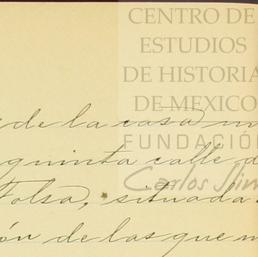 CENTRO DE
ESTUDIOS
DE HISTORIA
DE MEXICO
FUNDACIÓN
Carlos Slim
de la casa
quinta calle d
Tolsa, situada
ón de las que